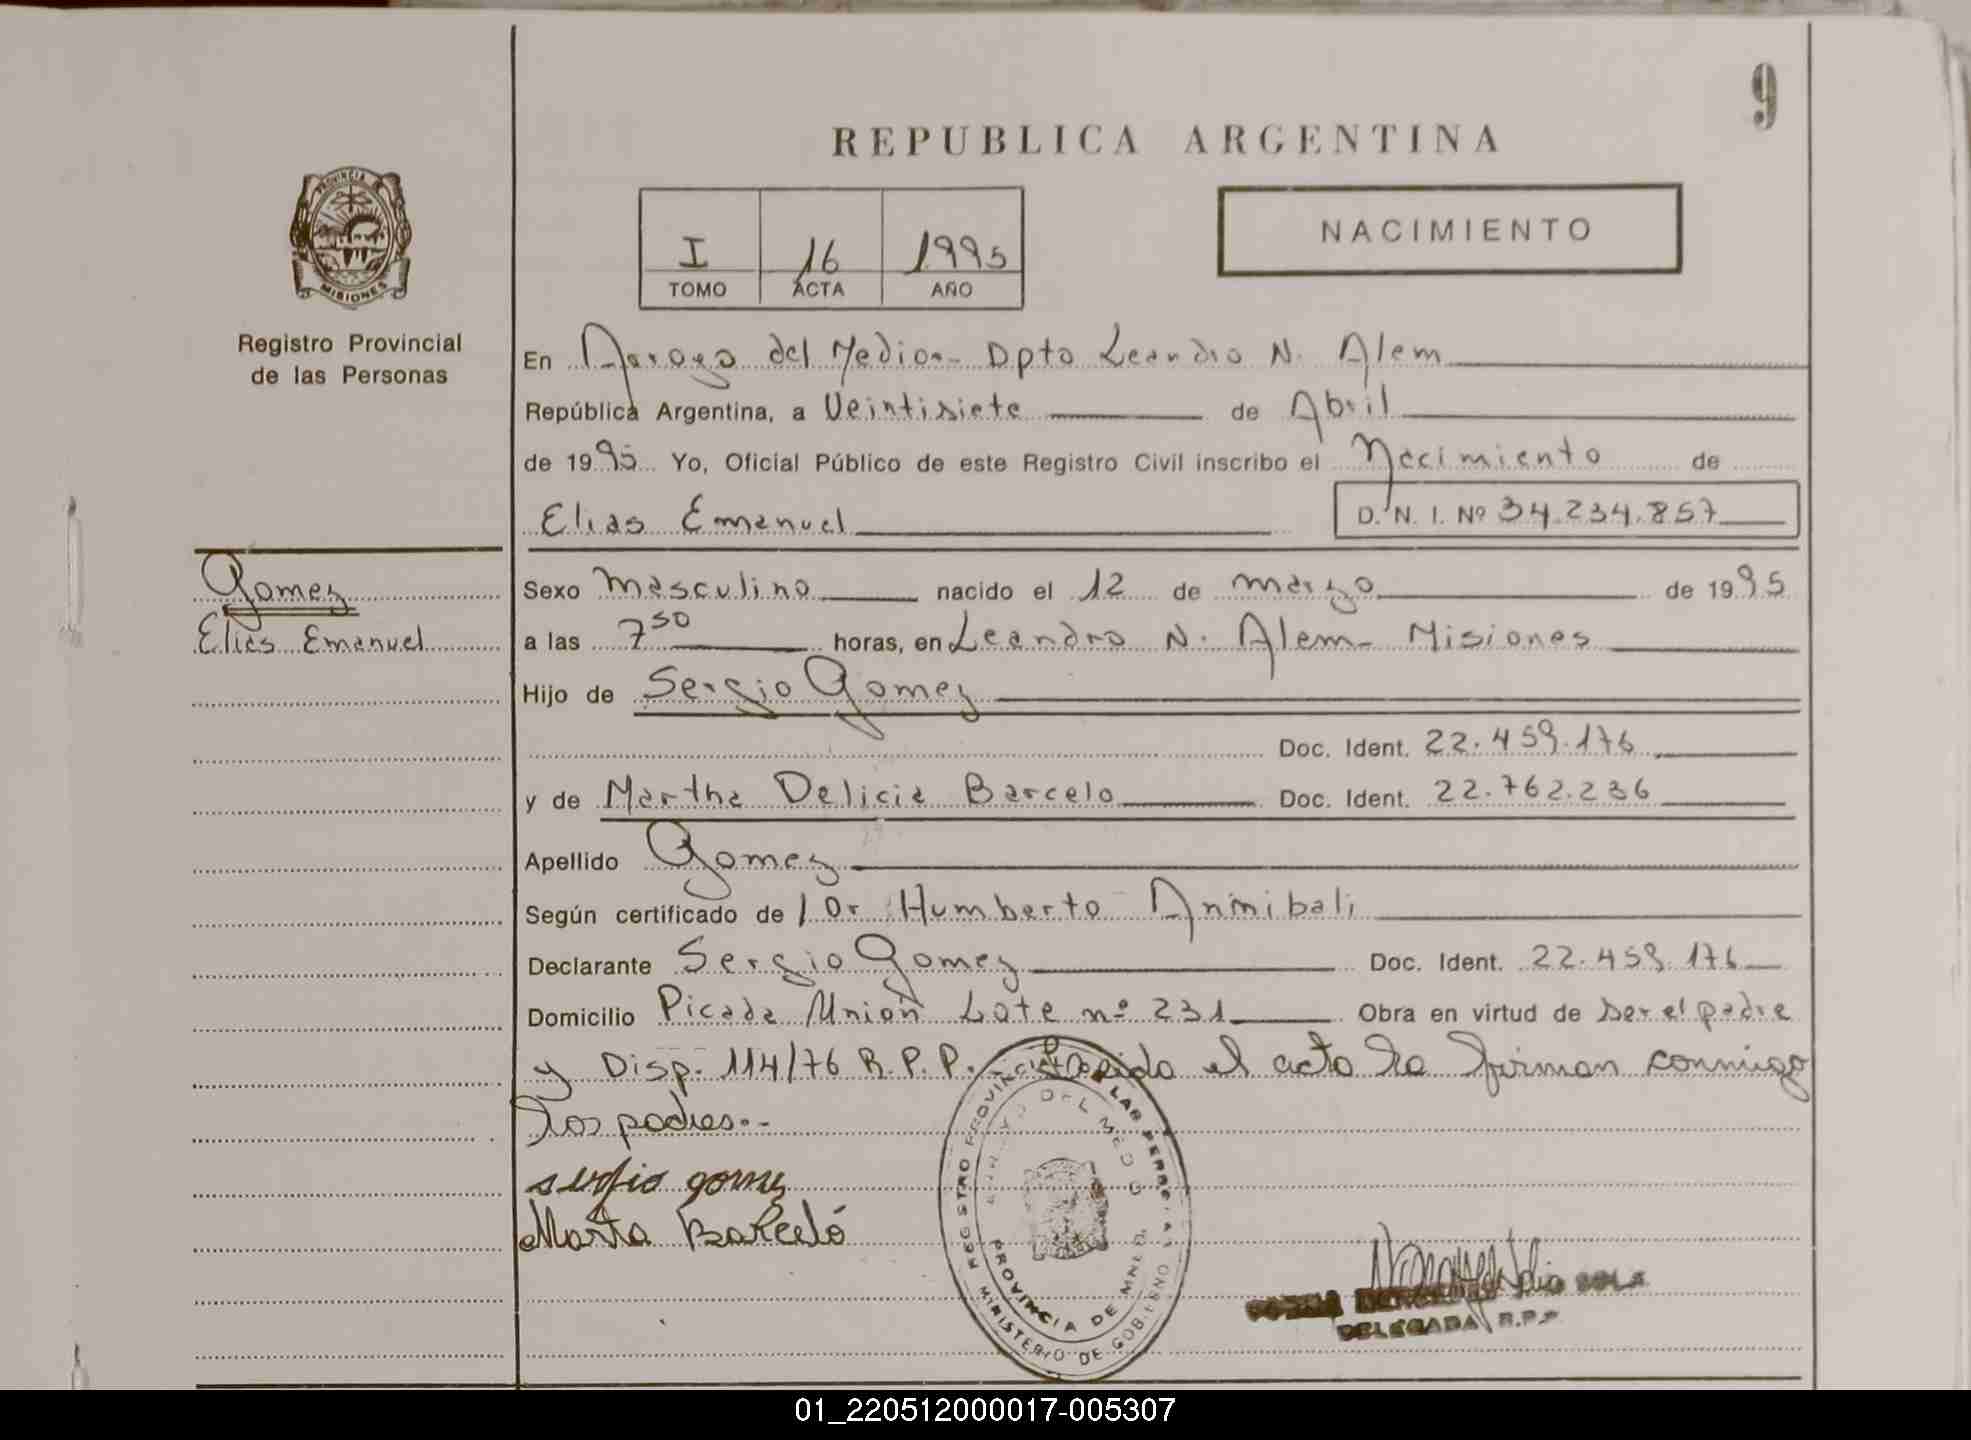 9
REPUBLICA ARGENTINA
PROVINCIA D
MISIONES
I 16 1995
TOMO ACTA AÑO
NACIMIENTO
Registro Provincial
de las Personas
En Arroyo del Medio.- Dpto Leandro N. Alem
República Argentina, a Veintisiete de Abril
de 1995 Yo, Oficial Público de este Registro Civil inscribo el Nacimiento de
Elias Emanuel D. N. I. Nº 34.234.857
Gomez
Elias Emanuel
Sexo Masculino nacido el 12 de marzo de 1995
a las 7 50 horas, en Leandro N. Alem - Misiones
Hijo de Sergio Gomez
Doc. Ident. 22.459.176
y de Martha Delicia Barcelo Doc. Ident. 22.762.236
Apellido Gomez
Según certificado de / Dr Humberto Annibali
Declarante Sergio Gomez Doc. Ident. 22.459.176
Domicilio Picada Union Lote nº 231 Obra en virtud de ser el padre
y Disp. 114/76 R.P.P. el acto la firman conmigo
los padres.-
sergio gomez
Marta Barceló
PROVINCIA DE
MINISTERIO DE GOBIERNO
DELEGADA R.P.P.
01_220512000017-005307